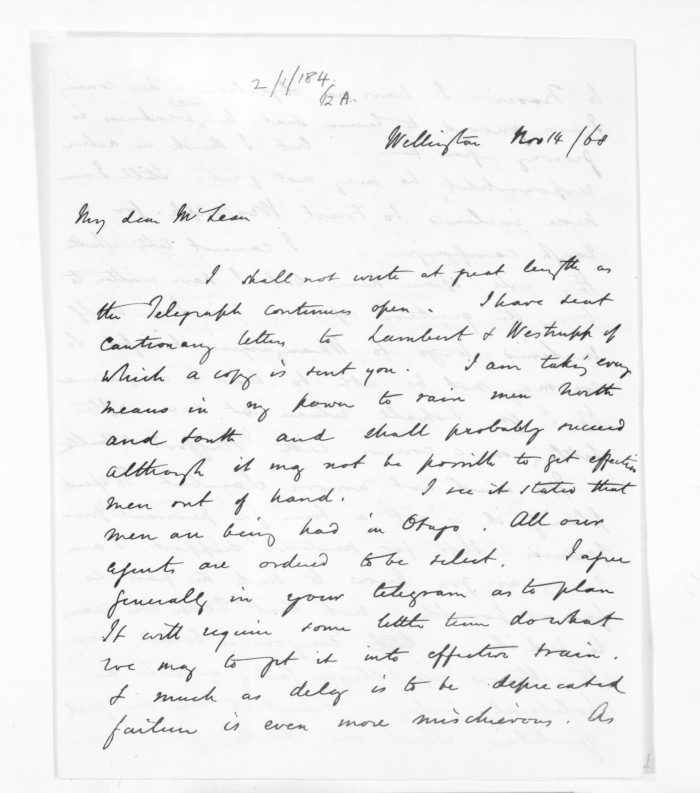 2/1/184
/2 A.
Wellington Nov 14/68
My dear McLean
I shall not write at great length as
the Telegraph continues open. I have sent
cautionary letters to Lambert & Westrupp of
which a copy is sent you. I am taking every
means in my power to raise men North
and South and shall probably succeed
although it may not be possible to get effective
men out of hand. I see it stated that
men are being had in Otago. All our
agents are ordered to be select. I agree
generally in your telegram as to plan
It will require some little time do what
we may to get it into effective train.
& much as delay is to be deprecated
failure is even more mischievous. As